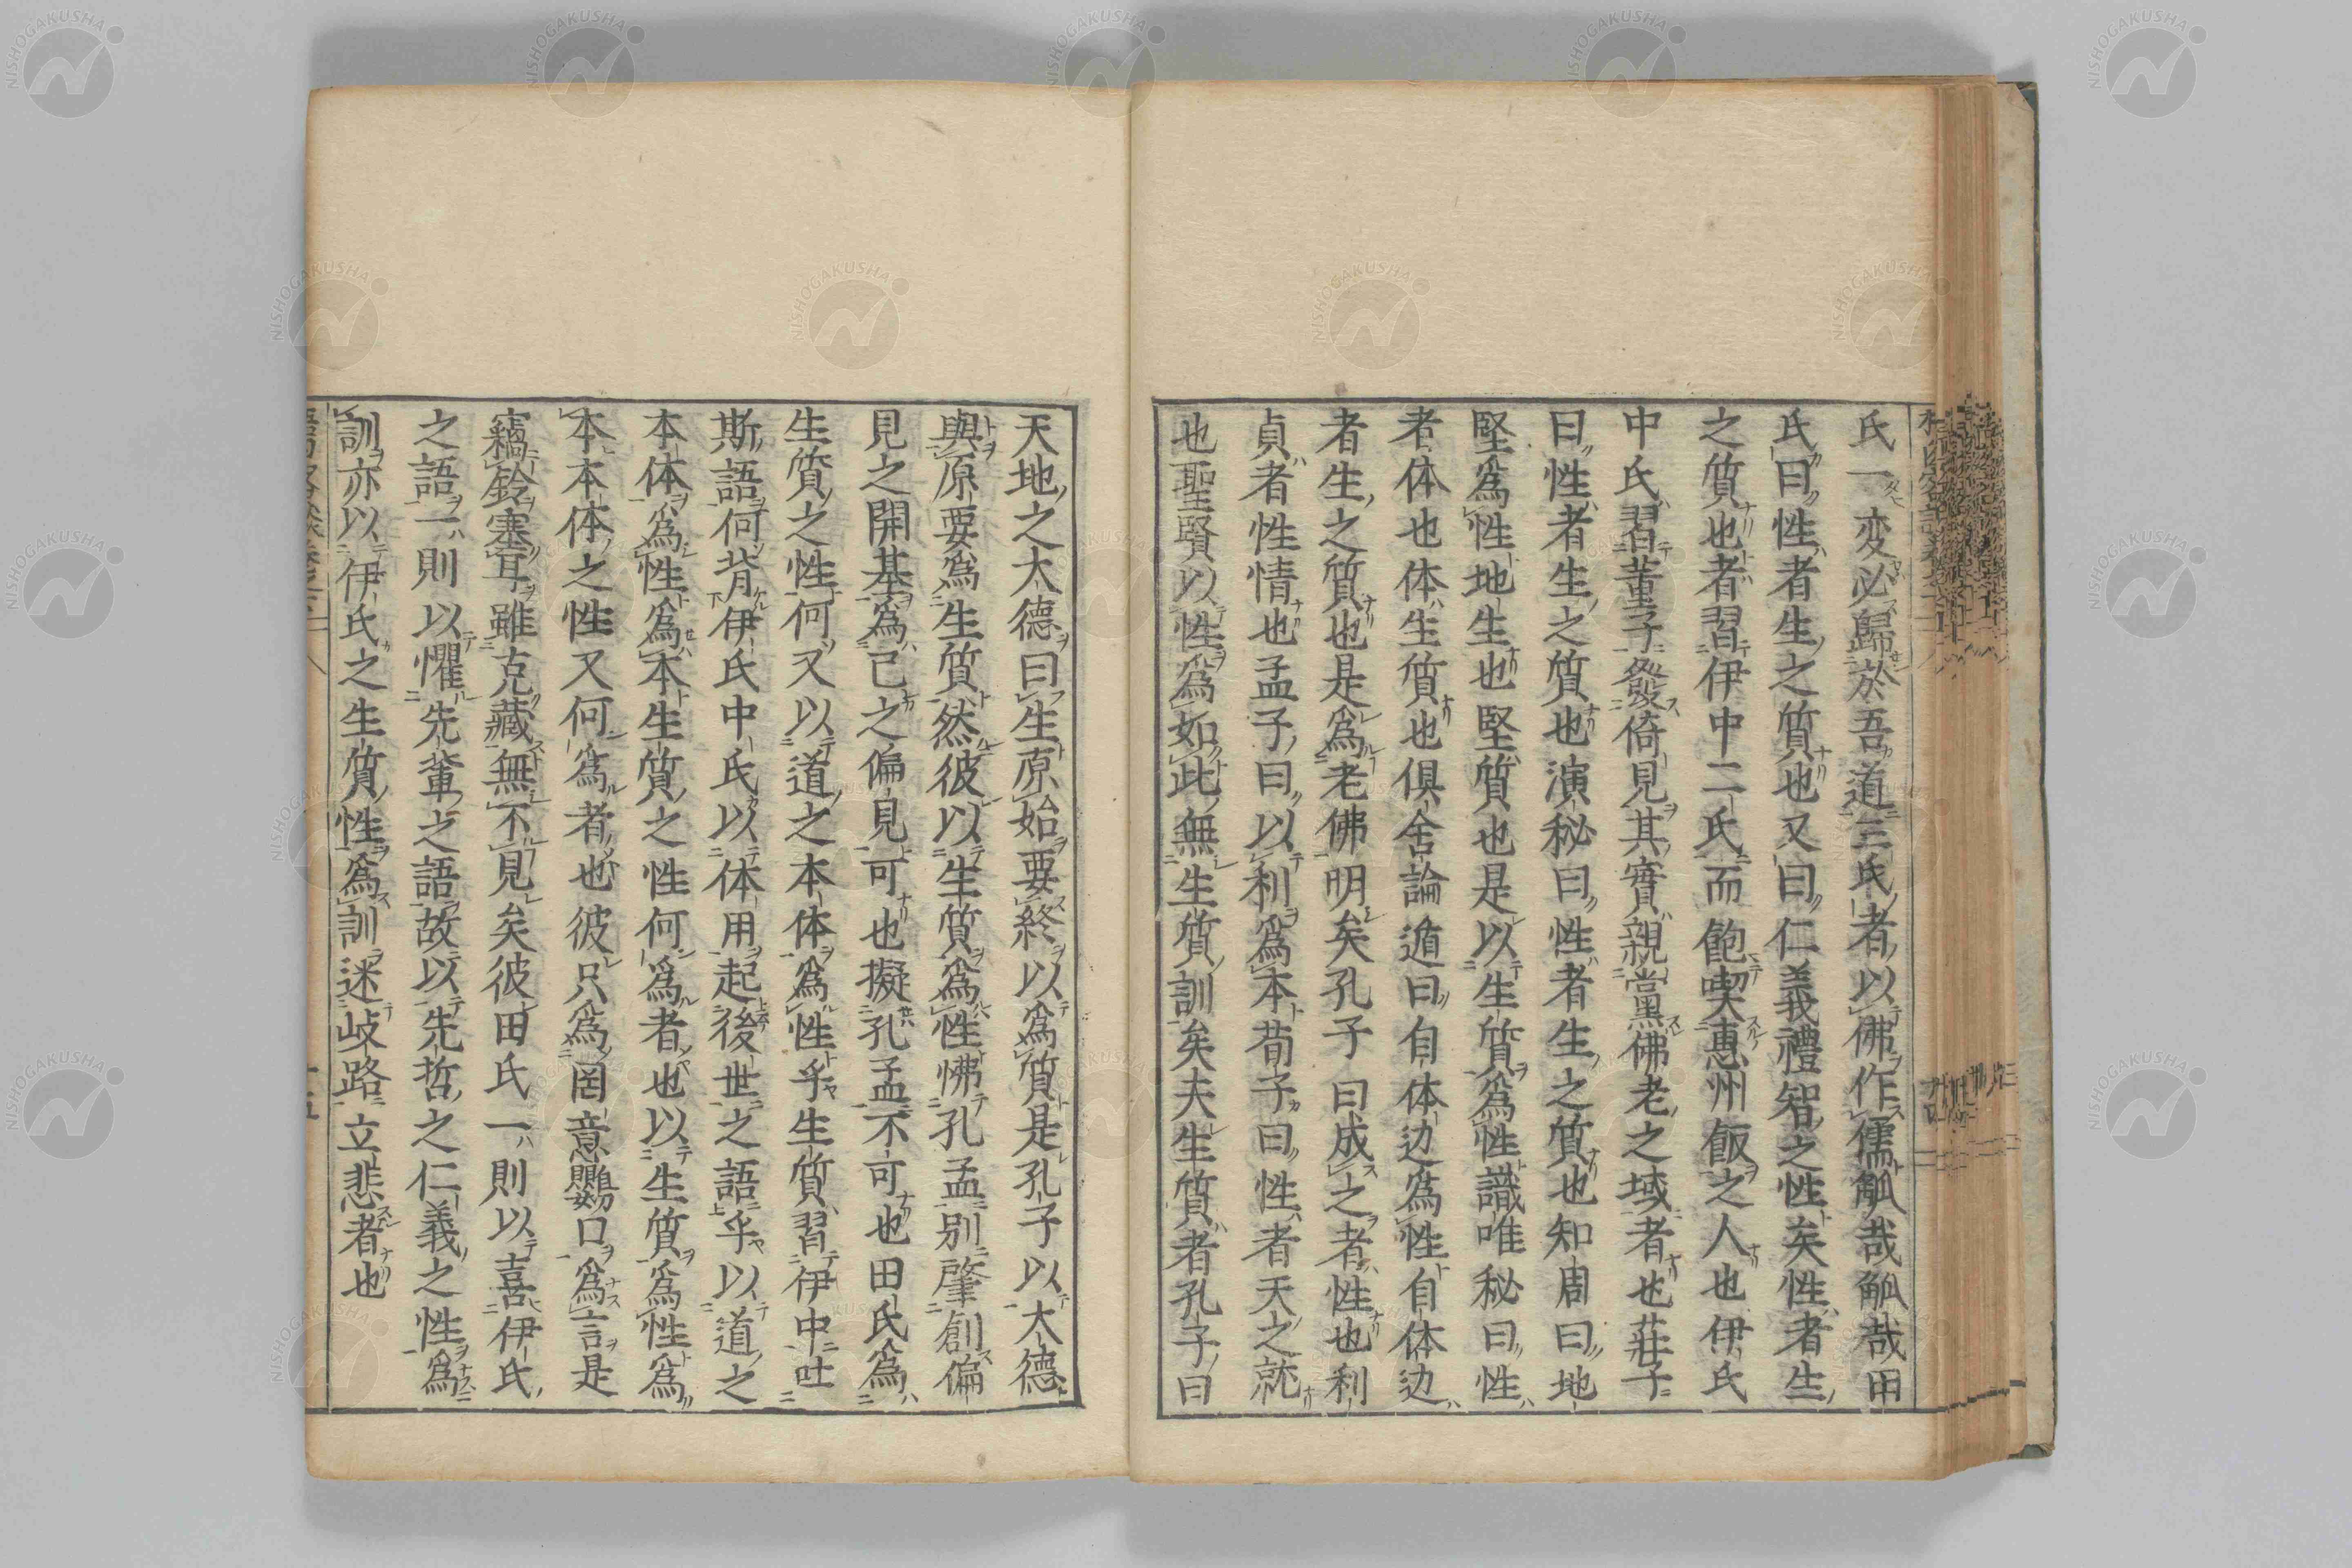 氏一変必歸於吾道三氏者以佛作儒觚哉觚哉田
氏曰性者生之質也又曰仁義禮智之性矣性者生
之質也者習伊中二氏而飽喫惠州飯之人也伊氏
中氏習董子發倚見其實親黨佛老之域者也莊子
曰性者生之質也演秘曰性者生之質也知周曰地
堅爲性地生也堅質也是以生質爲性識唯秘曰性
者体也体生質也俱舍論遁曰自体边爲性自体边
者生之質也是爲老佛明矣孔子曰成之者性也利
貞者性情也孟子曰以利爲本荀子曰性者天之就
也聖賢以性爲如此無生質訓矣夫生質者孔子曰
天地之大德曰生原始要終以爲質是孔子以大德
與原要爲生質然彼以生質爲性怫孔孟別肇創偏
見之開基爲己之偏見可也擬孔孟不可也田氏爲
生質之性何又以道之本体爲性乎生質習伊中吐
斯語何背伊氏中氏以体用起後世之語乎以道之
本体爲性爲本生質之性何爲者也以生質爲性爲
本本体之性又何爲者也彼只爲罔意鸚口爲言是
竊鈴塞耳雖克藏無不見矣彼田氏一則以喜伊氏
之語一則以懼先輩之語故以先哲之仁義之性爲
訓亦以伊氏之生質性爲訓迷岐路立悲者也